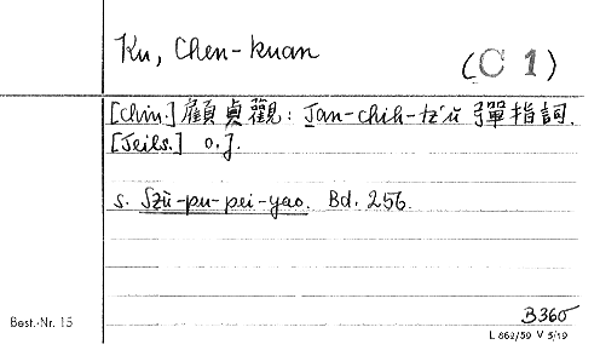 Ku, Chen-kuan
(C 1)
[chin.] 顧貞觀: Tan-chih-tz'ŭ 彈指詞.
[Teils.] o.J.
s. Szŭ-pu-pei-yao. Bd. 256.
B360
Best.-Nr. 15
L 862/59 V 5/19